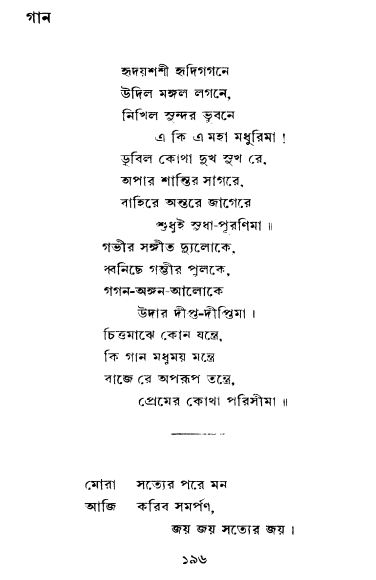 গান
হৃদয়শশী হৃদিগগনে
উদিল মঙ্গল লগনে,
নিখিল সুন্দর ভুবনে
এ কি এ মহা মধুরিমা !
ডুবিল কোথা দুখ সুখ রে,
অপার শান্তির সাগরে,
বাহিরে অন্তরে জাগেরে
শুধুই সুধা-পূরণিমা ॥
গভীর সঙ্গীত দ্যুলোকে,
ধ্বনিছে গম্ভীর পুলকে,
গগন-অঙ্গন-আলোকে
উদার দীপ্ত-দীপ্তিমা ।
চিত্তমাঝে কোন যন্ত্রে,
কি গান মধুময় মন্ত্রে
বাজে রে অপরূপ তন্ত্রে,
প্রেমের কোথা পরিসীমা ॥
মোরা সত্যের পরে মন
আজি করিব সমর্পণ,
জয় জয় সত্যের জয় ।
১৯৬